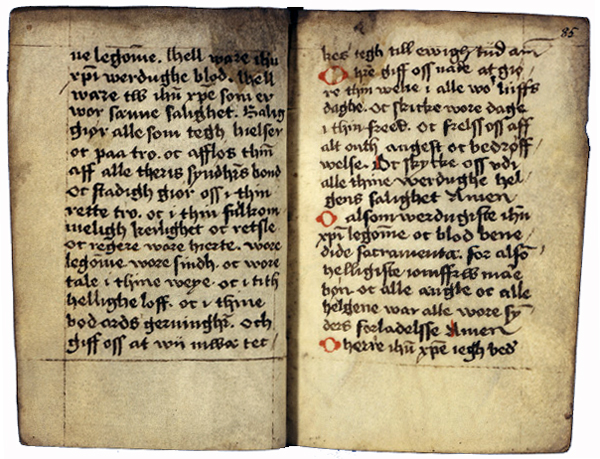 ne legome. hell ware ihu
xpi werdughe blod. hell
ware tw ihu xpe som er
wor sanne salighet. Salig
giør alle som tegh hielser
oc paa tro. oc affløs thin
aff alle theris syndhrs bond
oc stadigh giør oss i thin
rette tro. oc i thin fulkom
meligh kerlighet oc retsle
oc regere wore hierte. wore
legome wore sindh. oc wore
tale i thine weye. oc i tith
hellighe loff. oc i thine
bod ords gerninghr. Och
giff oss at wii mwæ tet
85
hes tegh till ewigh tiid am
O hre giff oss nade at giø
re thin welie i alle wo liiffs
daghe. oc skicke wore dage
i thin freed. oc frelss oss aff
alt onth angest oc bedrøff
welse. Oc skycke oss vdi
alle thine werdughe hel
gens salighet Amen
O alsom werdugiste ihu
xpi legome oc blod bene
dide sacramenta. for alsom
helligiste iomffrw maie
bøn oc alle angle oc alle
helgene war alle wore sy
ders forladelsse Amen
O herre ihu xpe iegh bed